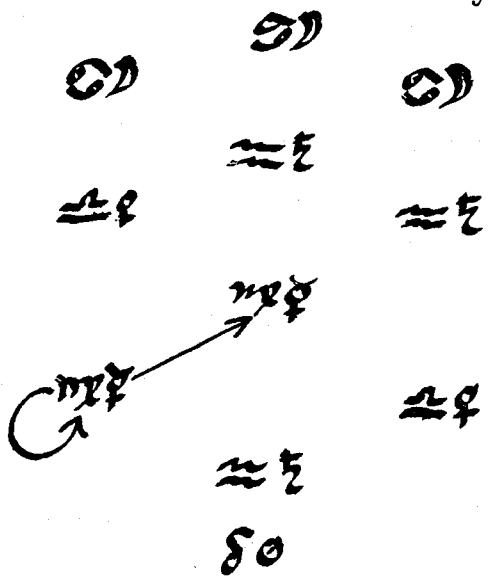 ♋☽
♋☽ ♋☽
♒♄
♎♀ ♒♄
♍☿
♍☿
♎♀
♒♄
☉